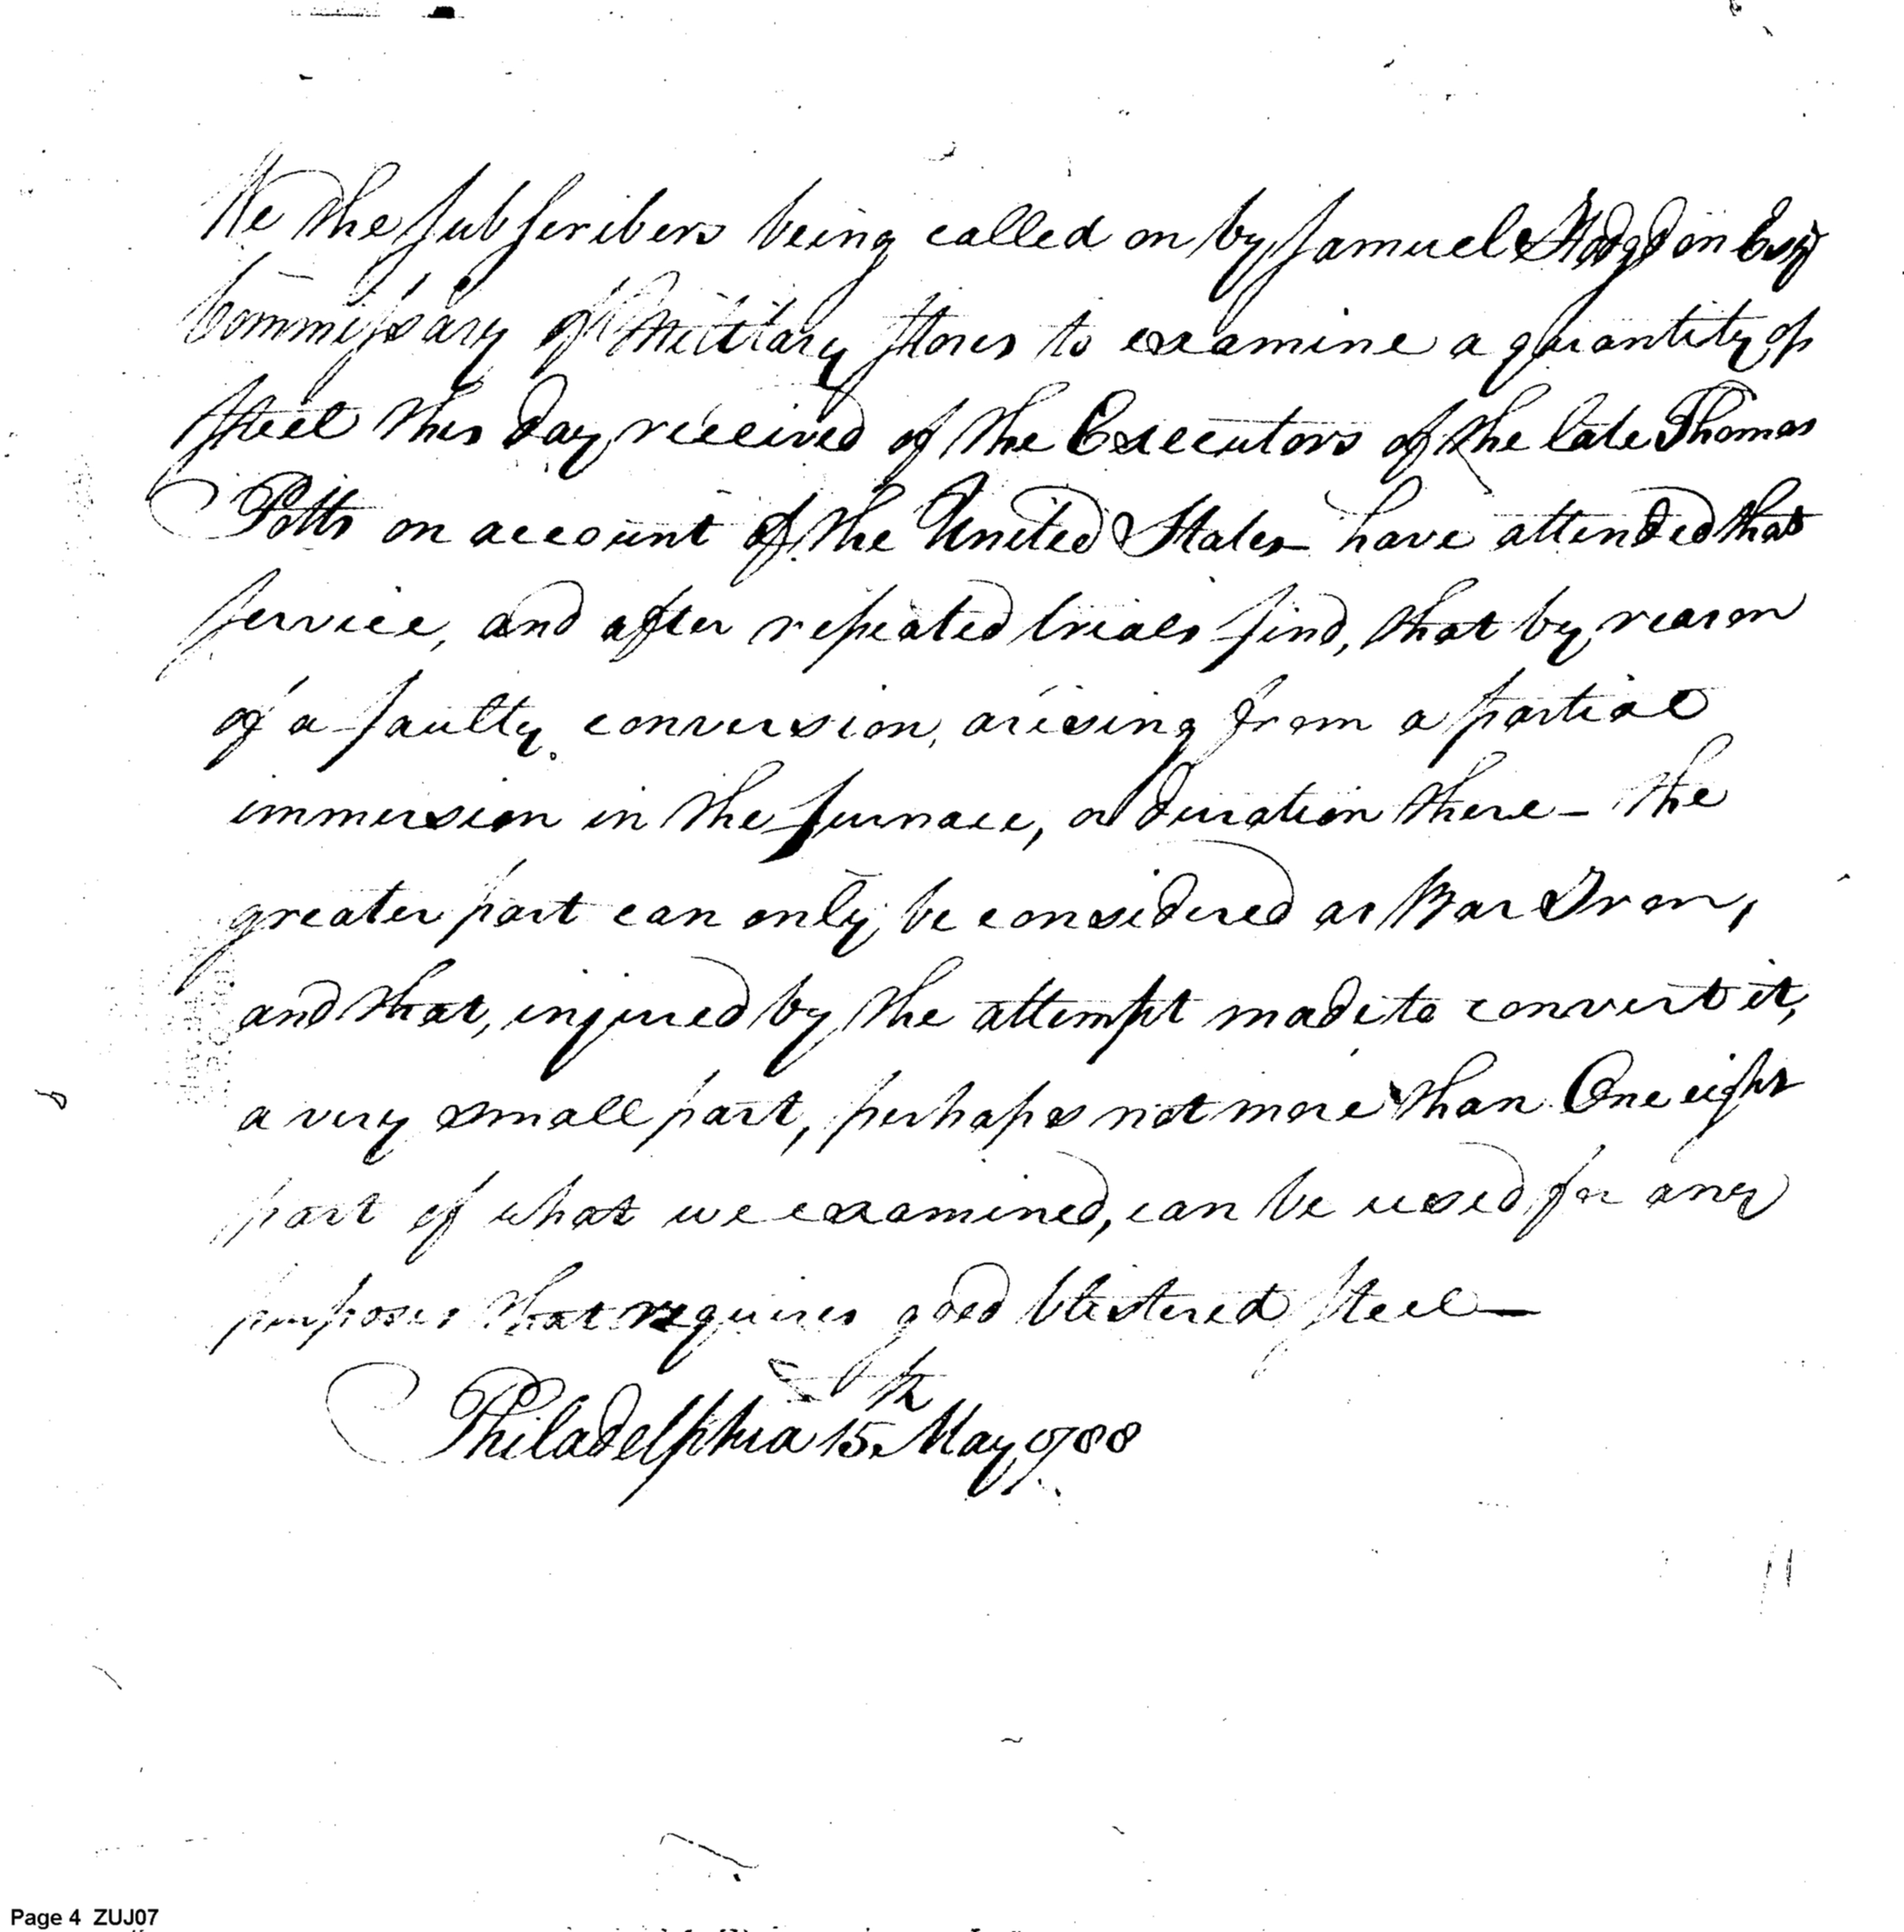 We the Subscribers being called on by Samuel Hodgdon Esqr
Commissary of Military Stores to examine a quantity of
Steel this day received of the Executors of the late Thomas
Potts on account of the United States— have attended that
service, and after repeated trials find, that by reason
of a faulty conversion, arising from a partial
immersion in the furnace, or duration there— the
greater part can only be considered as Bar Iron,
and that, injured by the attempt made to convert it,
a very small part, perhaps not more than One eight
part of what we examined, can be used for any
purposes that requires good blistered Steel—
Philadelphia 15th May 1788
Page 4 ZUJ07